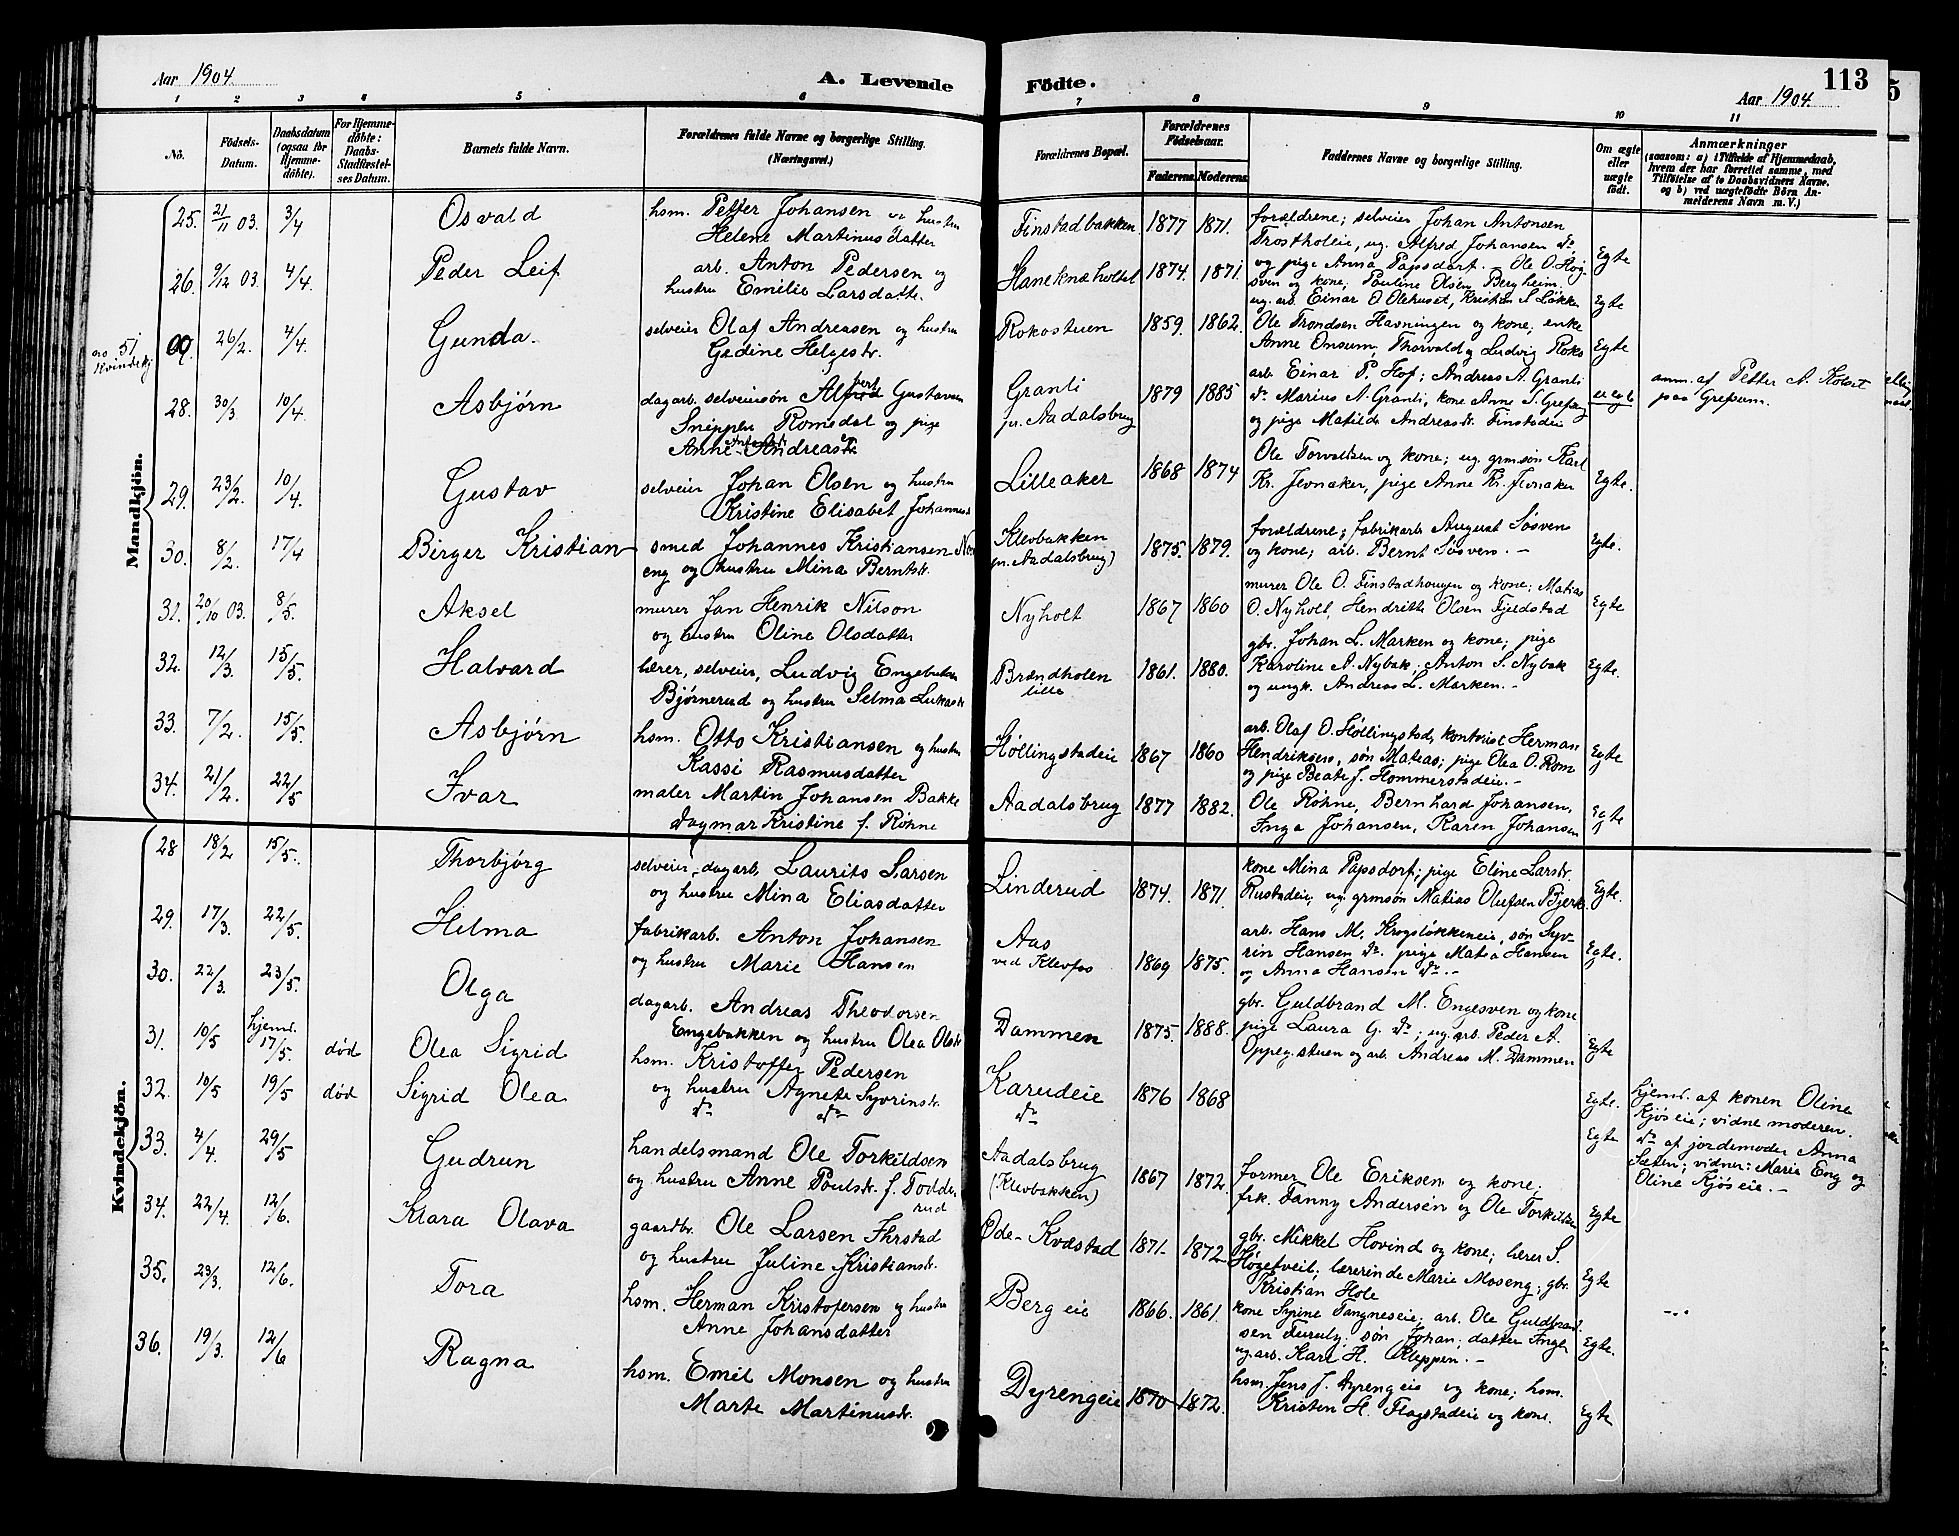 Aar 1904.
A. Levende Födte.
113
Aar 1904.
1 2 3 4 5 6 7 8 9 10 11
No.
Födsels-Datum.
Daabsdatum (ogsaa för Hjemme-döbte).
For Hjemme-döbte: Daabs-Stadfæstel-ses Datum.
Barnets fulde Navn.
Forældrenes fulde Navne og borgerlige Stilling. (Næringsvei.)
Forældrenes Bopæl.
Forældrenes Födselsaar.
Faderens. Moderens.
Faddernes Navne og borgerlige Stilling.
Om ægte eller uægte födt.
Anmærkninger
(saasom: a) i Tilfælde af Hjemmedaab, hvem der har forrettet samme, med Tilföielse af to Daabsvidners Navne, og b) ved uægtefödte Börn An-melderens Navn m. V.)
Mandkjön.
25. 21/11 03. 3/4 Osvald
hsm. Petter Johansen og hustru
Helene Martinusdatter
Finstadbakken 1877 1871.
forældrene; selveier Johan Antonsen
Trostholeie, ug. Alfred Johansen do
og pige Anna Papsdorf.
Egte
26. 9/12 03. 4/4. Peder Leif
arb. Anton Pedersen og
hustru Emilie Larsdatter.
Haneknæholtet 1874. 1871.
Ole O. Høg-
sven og kone; Pauline Olsen Bergheim.
ug. arb. Einar O. Olehuset, Kristian S. Løkken
Egte
no 51 Kvindekj
26/2. 4/4. Gunda.
selveier Olaf Andreasen og hustru
Gedine Helgestr.
Rokostuen 1859. 1862.
Ole Trondsen Havningen og kone; enke
Anne Onsum, Thorvald og Ludvig Roko
Egte
28. 30/3 10/4. Asbjørn
dagarb. selveiersøn Alfred Gustavsen
Sneppen Romsdal og pige
Anne Andreasdr.
Granli
pr. Aadalsbrug
1879 1885
arb. Einar P. Hof; Andreas A. Granli
do Marius A. Granli, kone Anne S. Grefseng
og pige Matilde Andreasdr. Finstadeie
uegte
anm. af Petter A. Kolset
paa Grefsum.
29. 23/2. 10/4. Gustav
selveier Johan Olsen og hustru
Kristine Elisabet Johannesdr
Lilleaker 1868 1874
Ole Torvaldsen og kone; ug. grmsøn Karl
Kr. Jevnaker, pige Anne Kr. Jevnaker
Egte.
30. 8/2. 17/4 Birger Kristian
smed Johannes Kristiansen Nor
eng og hustru Mina Berntdr.
Klevbakken
pr. Aadalsbrug)
1875. 1879.
forældrene; fabrikarb. August Søsven
og kone; arb. Bernt Søsven. -
Egte.
31. 20/10 03. 8/5. Aksel
murer Jan Henrik Nilson
og hustru Oline Olsdatter
Nyholt 1867 1860
murer Ole O. Finstadhaugen og kone; Matias
O. Nyholt, Hendrikke Olsen Fjeldstad
Egte
32. 12/3. 15/5. Halvard
lærer, selveier, Ludvig Engebretsen
Bjørnerud og hustru Selma Lukasdr
Brændholen
lille
1861. 1880.
gbr. Johan L. Marken og kone; pige
Karoline A. Nybak; Anton S. Nybak
og ungk. Andreas L. Marken. -
Egte.
33. 7/2. 15/5. Asbjørn
hsm. Otto Kristiansen og hustru
Kassi Rasmusdatter
Høllingstadeie 1867 1860
arb. Olaf O. Høllingstad, kontorist Herman
Hendriksen, søn Matias; pige Olea O. Rom
og pige Beate J. Hommerstadeie. -
Egte
34. 21/2. 22/5 Ivar
maler Martin Johansen Bakke
Dagmar Kristine f. Røhne
Aadalsbrug 1877 1882.
Ole Røhne, Bernhard Johansen,
Inga Johansen, Karen Johansen
Egte
Kvindekjön.
28 18/2 15/5. Thorbjørg
selveier, dagarb. Laurits Larsen
og hustru Mina Eliasdatter
Linderud 1874. 1871.
kone Mina Papsdorf; pige Eline Larsdr.
Rustadeie, ug. grmsøn Matias Olufsen Bjerk.
Egte.
29. 17/3. 22/5. Helma
fabrikarb. Anton Johansen
og hustru Marie Hansen
Aas
ved Klevfos
1869 1875.
arb. Hans M. Krogsløkkeneie, søn Syv-
rin Hansen do. pige Matea Hansen
og Anna Hansen do. -
Egte.
30. 22/3. 23/5. Olga
dagarb. Andreas Theodorsen
Engebakken og hustru Olea Olsdr
Dammen 1875. 1888.
gbr. Guldbrand M. Engesven og kone
pige Laura G. do; ug. arb. Peder A.
Oppegstuen og arb. Andreas M. Dammen
Egte
31. 10/5 hjemd. 17/5. død Olea Sigrid
hsm. Kristoffer Pedersen
og hustru Agnete Syvrinsdr.
Karudeie 1876 1868
Egte.
hjemd. af konen Oline
Kjøseie; vidne moderen.
32. 10/5 19/5 død Sigrid Olea
do do
do
Egte
do af jordemoder Anna
Sæten; vidner: Marie Eng og
Oline Kjøseie. -
33. 4/4. 29/5 Gudrun
handelsmand Ole Torkildsen
og hustru Anne Poulsdr. f. Todde
rud
Aadalsbrug
(Klevbakken)
1867 1872.
former Ole Eriksen og kone;
frk. Fanny Andersen og Ole Torkildsen
Egte
34. 22/4. 12/6. Klara Olava
gaardbr. Ole Larsen Ihrstad
og hustru Juline Kristiansdr.
Øde-Kvæstad 1871. 1872
gbr. Mikkel Hovind og kone; lærer S.
Høgetveit; lærerinde Marie Moseng; gbr.
Kristian Hole
Egte
35. 23/3. 12/6. Tora
hsm. Herman Kristofersen og hustru
Anne Johansdatter
Berg eie 1866. 1861.
kone Syrine Tangneseie; arb. Ole Guldbrand-
sen Furuly; søn Johan; datter Inger
ug. arb. Karl H. Kleppen. -
Egte.
36. 19/3. 12/6 Ragna
hsm. Emil Monsen og hustru
Marte Martinusdr.
Dyrengeie 1870 1872.
hsm. Jens J. Dyrengeie og kone; hsm.
Kristen H. Flagstadeie og kone.
Egte